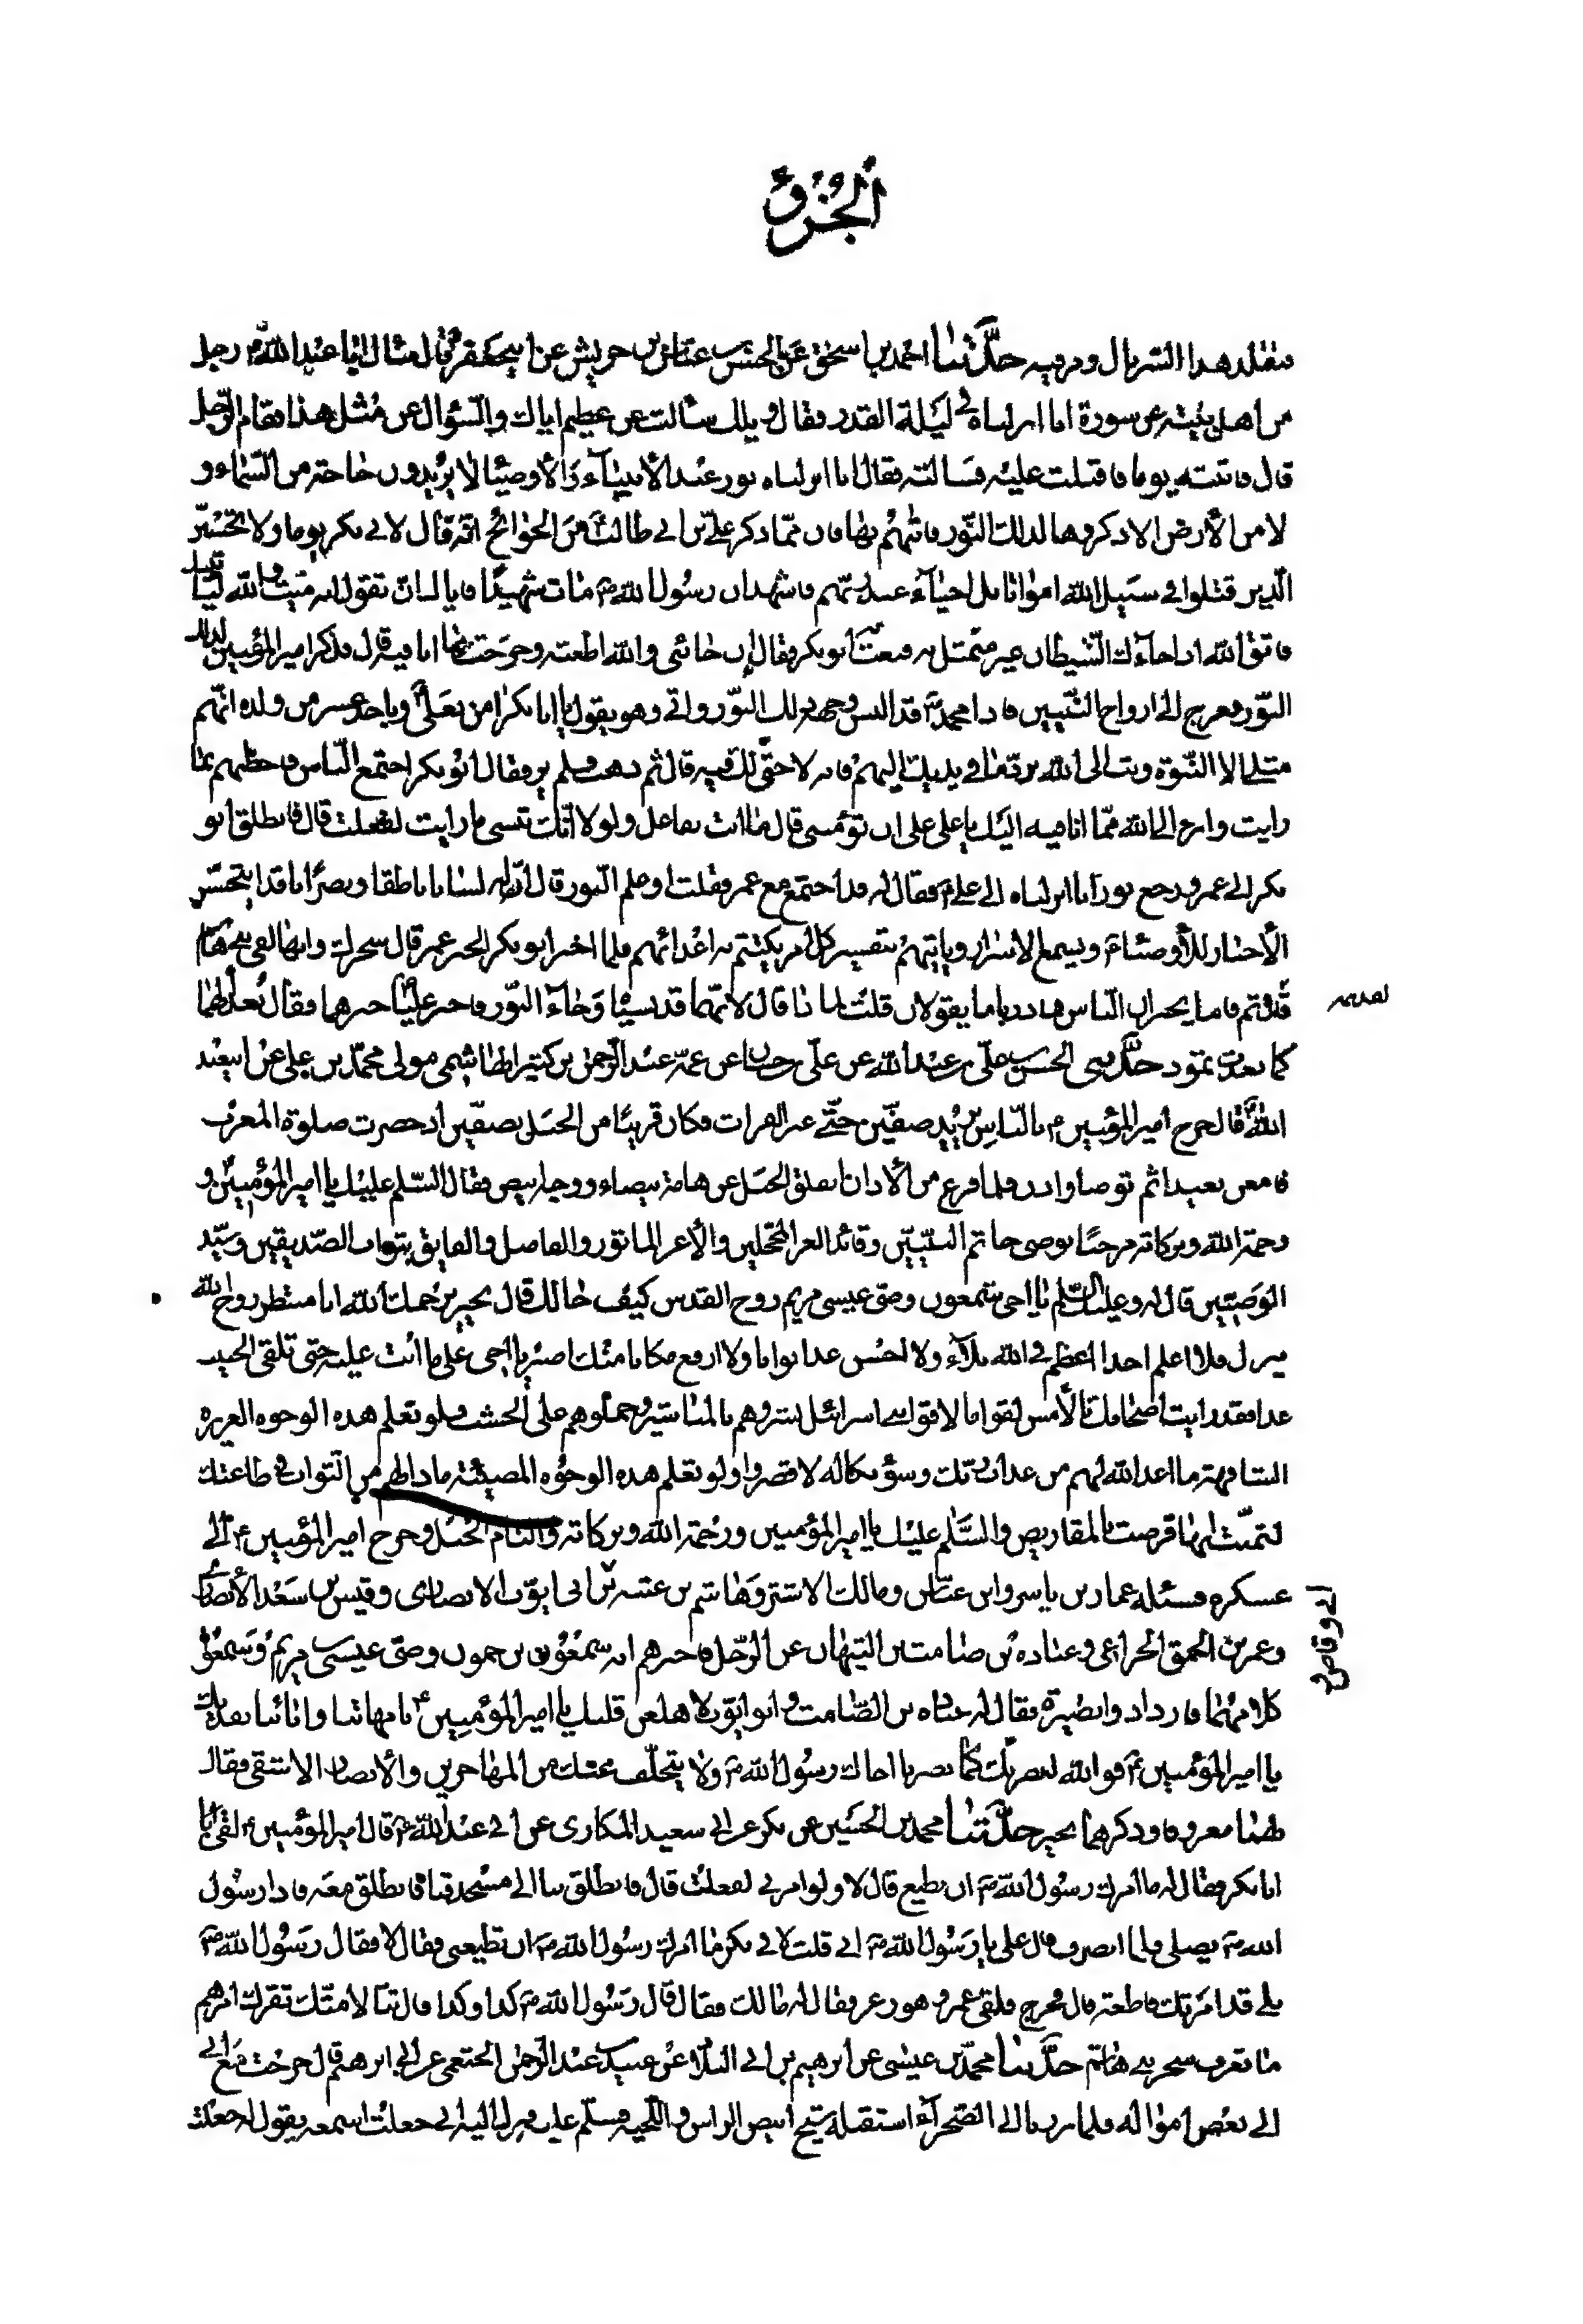 الجزؤ
هذا السربال ومربيه حدَّثنا احمد بن اسحق عن الحسن بن عباس بن حريش عن ابي جعفر قال سال ابا عبد الله رجل
من اهل بيته عن سورة انا انزلناه في ليلة القدر فقال ويلك سالت عن عظيم اياك والسّؤال عن مثل هذا فقام الرّجل
قال فاتيته يوما فاقبلت عليه فسالته فقال انا انزلناه نور عند الأنبياء والأوصياء لا يريدون حاجة من السّماء و
لا من الأرض الا ذكروها لذلك النّور فاتهم بها فان ممّا ذكر علي بن ابي طالب من الحوائج انّه قال لابي بكر يوما ولا تحسبنّ
الّذين قتلوا في سبيل الله امواتا بل احياء عند ربّهم فاشهد ان رسول الله مات شهيدًا فاياك ان تقول انه ميّت والله لياتينك
فاتق الله اذا جاءك الشّيطان غير متمثل به فبعث ابو بكر فقال ان جائني والله اطعته وخرجت مما انا فيه قال فذكر امير المؤمنين لذلك
النّور فعرج الى ارواح النّبيين فاذا محمد قد البس وجهه ذلك النّور واتى وهو يقول يا ابا بكر امن بعلي وباحد عشر من ولده انّهم
مثلي الا النّبوة وتب الى الله بردّ ما في يديك اليهم فانه لا حقّ لك فيه قال ثم ذهب فلم ير فقال ابو بكر اجتمع النّاس فاخطبهم بما
رايت وابرا الى الله ممّا انا فيه اليك يا علي على ان تؤمنني قال ما انت بفاعل ولولا انّك تنسى ما رايت لفعلت قال فانطلق ابو
بكر الى عمر ورجع نور انا انزلناه الى علي فقال له قد اجتمع مع عمر فقلت اوعلم النّور قال انّ له لسانا ناطقا وبصرًا نافذا يتجسّس
الأخبار للأوصياء ويسمع الاسرار وياتيهم بتفسير كل امر يكتتم به اعدائهم فلما اخبر ابو بكر الخبر عمر قال سحرك وانها لفي بني هاشم
لقديمة
قال ثم قاما يخبران النّاس فما دريا ما يقولان قلت لماذا قال لانّهما قد نسياه وجاء النّور فاخبر عليّا خبرهما فقال بعدًا لهما
كما بعدت ثمود حدّثني الحسن بن علي بن عبد الله عن علي بن حسان عن عمّه عبد الرّحمن بن كثير الهاشمي مولى محمّد بن علي عن ابيعبد
الله قال خرج امير المؤمنين بالنّاس يريد صفّين حتّى عبر الفرات فكان قريبًا من الجبل بصفّين اذ حضرت صلوة المغرب
فامعن بعيدا ثم توضا واذن فلما فرغ من الأذان انفلق الجبل عن هامة بيضاء ووجه ابيض فقال السّلم عليك يا امير المؤمنين و
رحمة الله وبركاته مرحبًا بوصي خاتم النّبيّين وقائد الغر المحجّلين والأعز الماثور والفاضل والفايق بثواب الصّديقين وسيّد
الوصيّين قال له وعليك السّلم يا اخي شمعون وصّي عيسى مريم روح القدس كيف حالك قال بخير يرحمك الله انا منتظر روح الله
ينزل فلا اعلم احدا اعظم في الله بلاء ولا احسن غدا ثوابا ولا ارفع مكانا منك اصبر يا اخي على ما انت عليه حتى تلقى الحبيب
غدا فقد رايت اصحابك بالأمس لقوا ما لاقوا بني اسرائيل نشروهم بالمناشير وحملوهم على الخشب فلو تعلم هذه الوجوه العزيزة
الشافهة ما اعد الله لهم من عذاب ربّك وسؤ نكاله لاقصروا ولو تعلم هذه الوجوه المضيئة ماذا لهم من الثواب في طاعتك
لتمنّت انها قرضت بالمقاريض والسّلم عليك يا امير المؤمنين ورحمة الله وبركاته والتام الجبل وخرج امير المؤمنين الى
عسكره فسئله عمار بن ياسر وابن عبّاس ومالك الاشتر وهاشم بن عتبه بن ابي ايّوب الانصارى وقيس بن سعد الأنصارى
ابي وقاص
وعمر بن الحمق الخزاعي وعباده بن صامت بن التيهان عن الرّجل فاخبرهم انه شمعون بن حمون وصّي عيسى مريم وسمعوا
كلامهما فازدادوا بصيرة فقال له عباده بن الصّامت وابو ايّوب لا هلعن قلبك يا امير المؤمنين بامهاتنا وابائنا نفديك
يا امير المؤمنين فو الله لننصرنك كما نصرنا اخاك رسول الله ولا يتخلّف عنك من المهاجرين والأنصار الا شقي فقال
لهما معروفا وذكرهما بخير حدّثنا محمد بن الحسين عن بكر عن ابي سعيد المكارى عن ابي عبد الله قال امير المؤمنين لقي ابا
ابا بكر فقال له ما امرك رسول الله ان تطيع قال لا ولو امرني لفعلت قال فانطلق بنا الى مسجد قبا فانطلق معه فاذا رسول
الله يصلي فلما انصرف قال علي يا رسول الله اني قلت لابي بكر ما امرك رسول الله ان تطيعني فقال لا فقال رسول الله
بلى قد امرتك فاطعه قال فخرج فلقى عمر وهو ذعر فقال له مالك فقال قال رسول الله كذا وكذا قال تبّا لامتك تترك امرهم
ما تعرف سحر بني هاشم حدّثنا محمّد بن عيسى عن ابرهيم بن ابي البلاد عن عبيد بن عبد الرّحمن الخثعمي عن ابي ابرهيم قال خرجت مع ابي
الى بعض امواله فلما برزنا الى الصّحراء استقبله شيخ ابيض الراس واللّحيه فسلّم عليه فنزل اليه ابي جعلت اسمعه يقول له جعلت